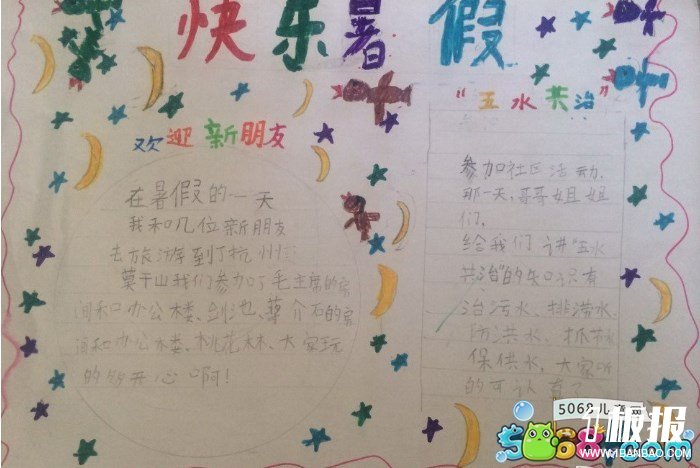 快乐暑假
欢迎新朋友
在暑假的一天
我和几位新朋友
去旅游到了杭州
莫干山我们参加了毛主席的房
间和办公楼、剑池、蒋介石的房
间和办公楼、桃花林、大家玩
的够开心啊！
“五水共治”
参加社区活动，
那一天，哥哥姐姐
们，
给我们讲“五水
共治”的知识有
治污水、排涝水、
防洪水、抓节水
保供水，大家听
的可认真了
5068儿童网
板报
5068.com
WWW.1BANBAO.COM